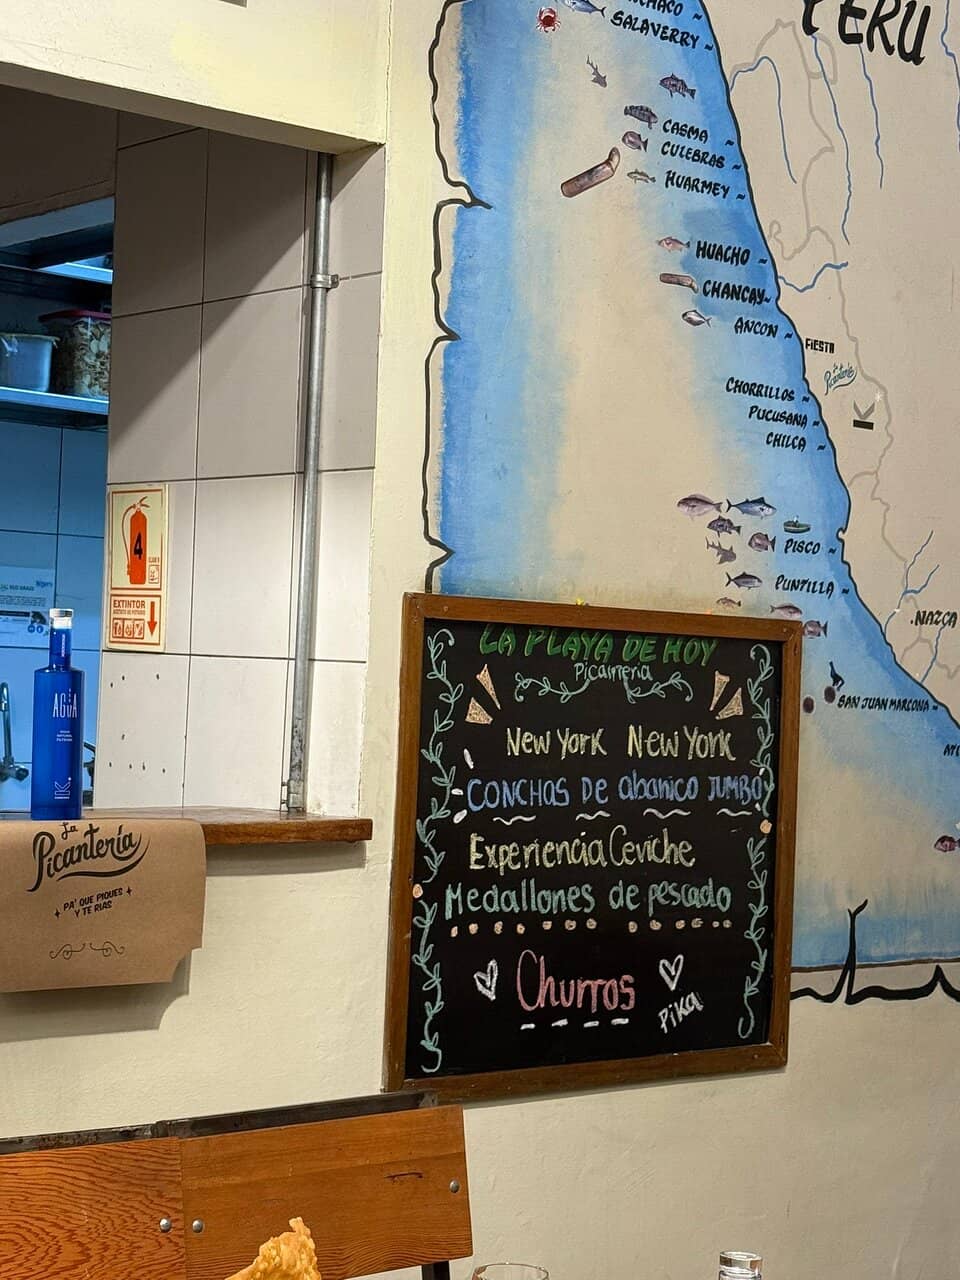 PERU
SALAVERRY ~
CASMA ~
CULEBRAS ~
HUARMEY ~
HUACHO ~
CHANCAY~
ANCON ~
FIESTA
La
Picantería
K
CHORRILLOS ~
PUCUSANA ~
CHILCA ~
PISCO ~
PUNTILLA ~
.NAZCA
SAN JUAN MARCONA ~
4
EXTINTOR
AGUA
K
La
Picantería
PA' QUE PIQUES
Y TE RIAS
LA PLAYA DE HOY
Picanteria
New York New York
CONCHAS DE abanico JUMBO
Experiencia Ceviche
Medallones de pescado
Churros
Pika